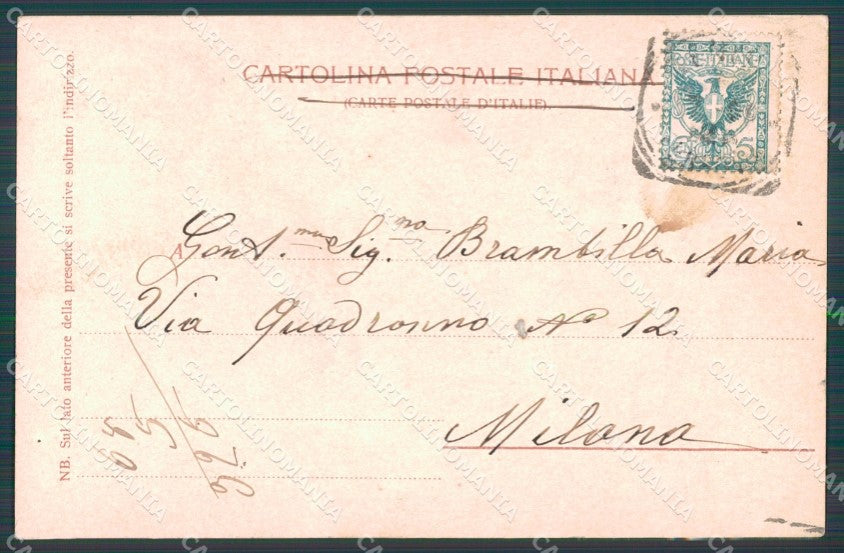 CARTOLINA POSTALE ITALIANA
(CARTE POSTALE D'ITALIE).
5
A Gent.ma Sig.na Brambilla Maria
Via Quadronno No 12
Milano
NB. Sul lato anteriore della presente si scrive soltanto l'indirizzo.
CARTOLINOMANIA